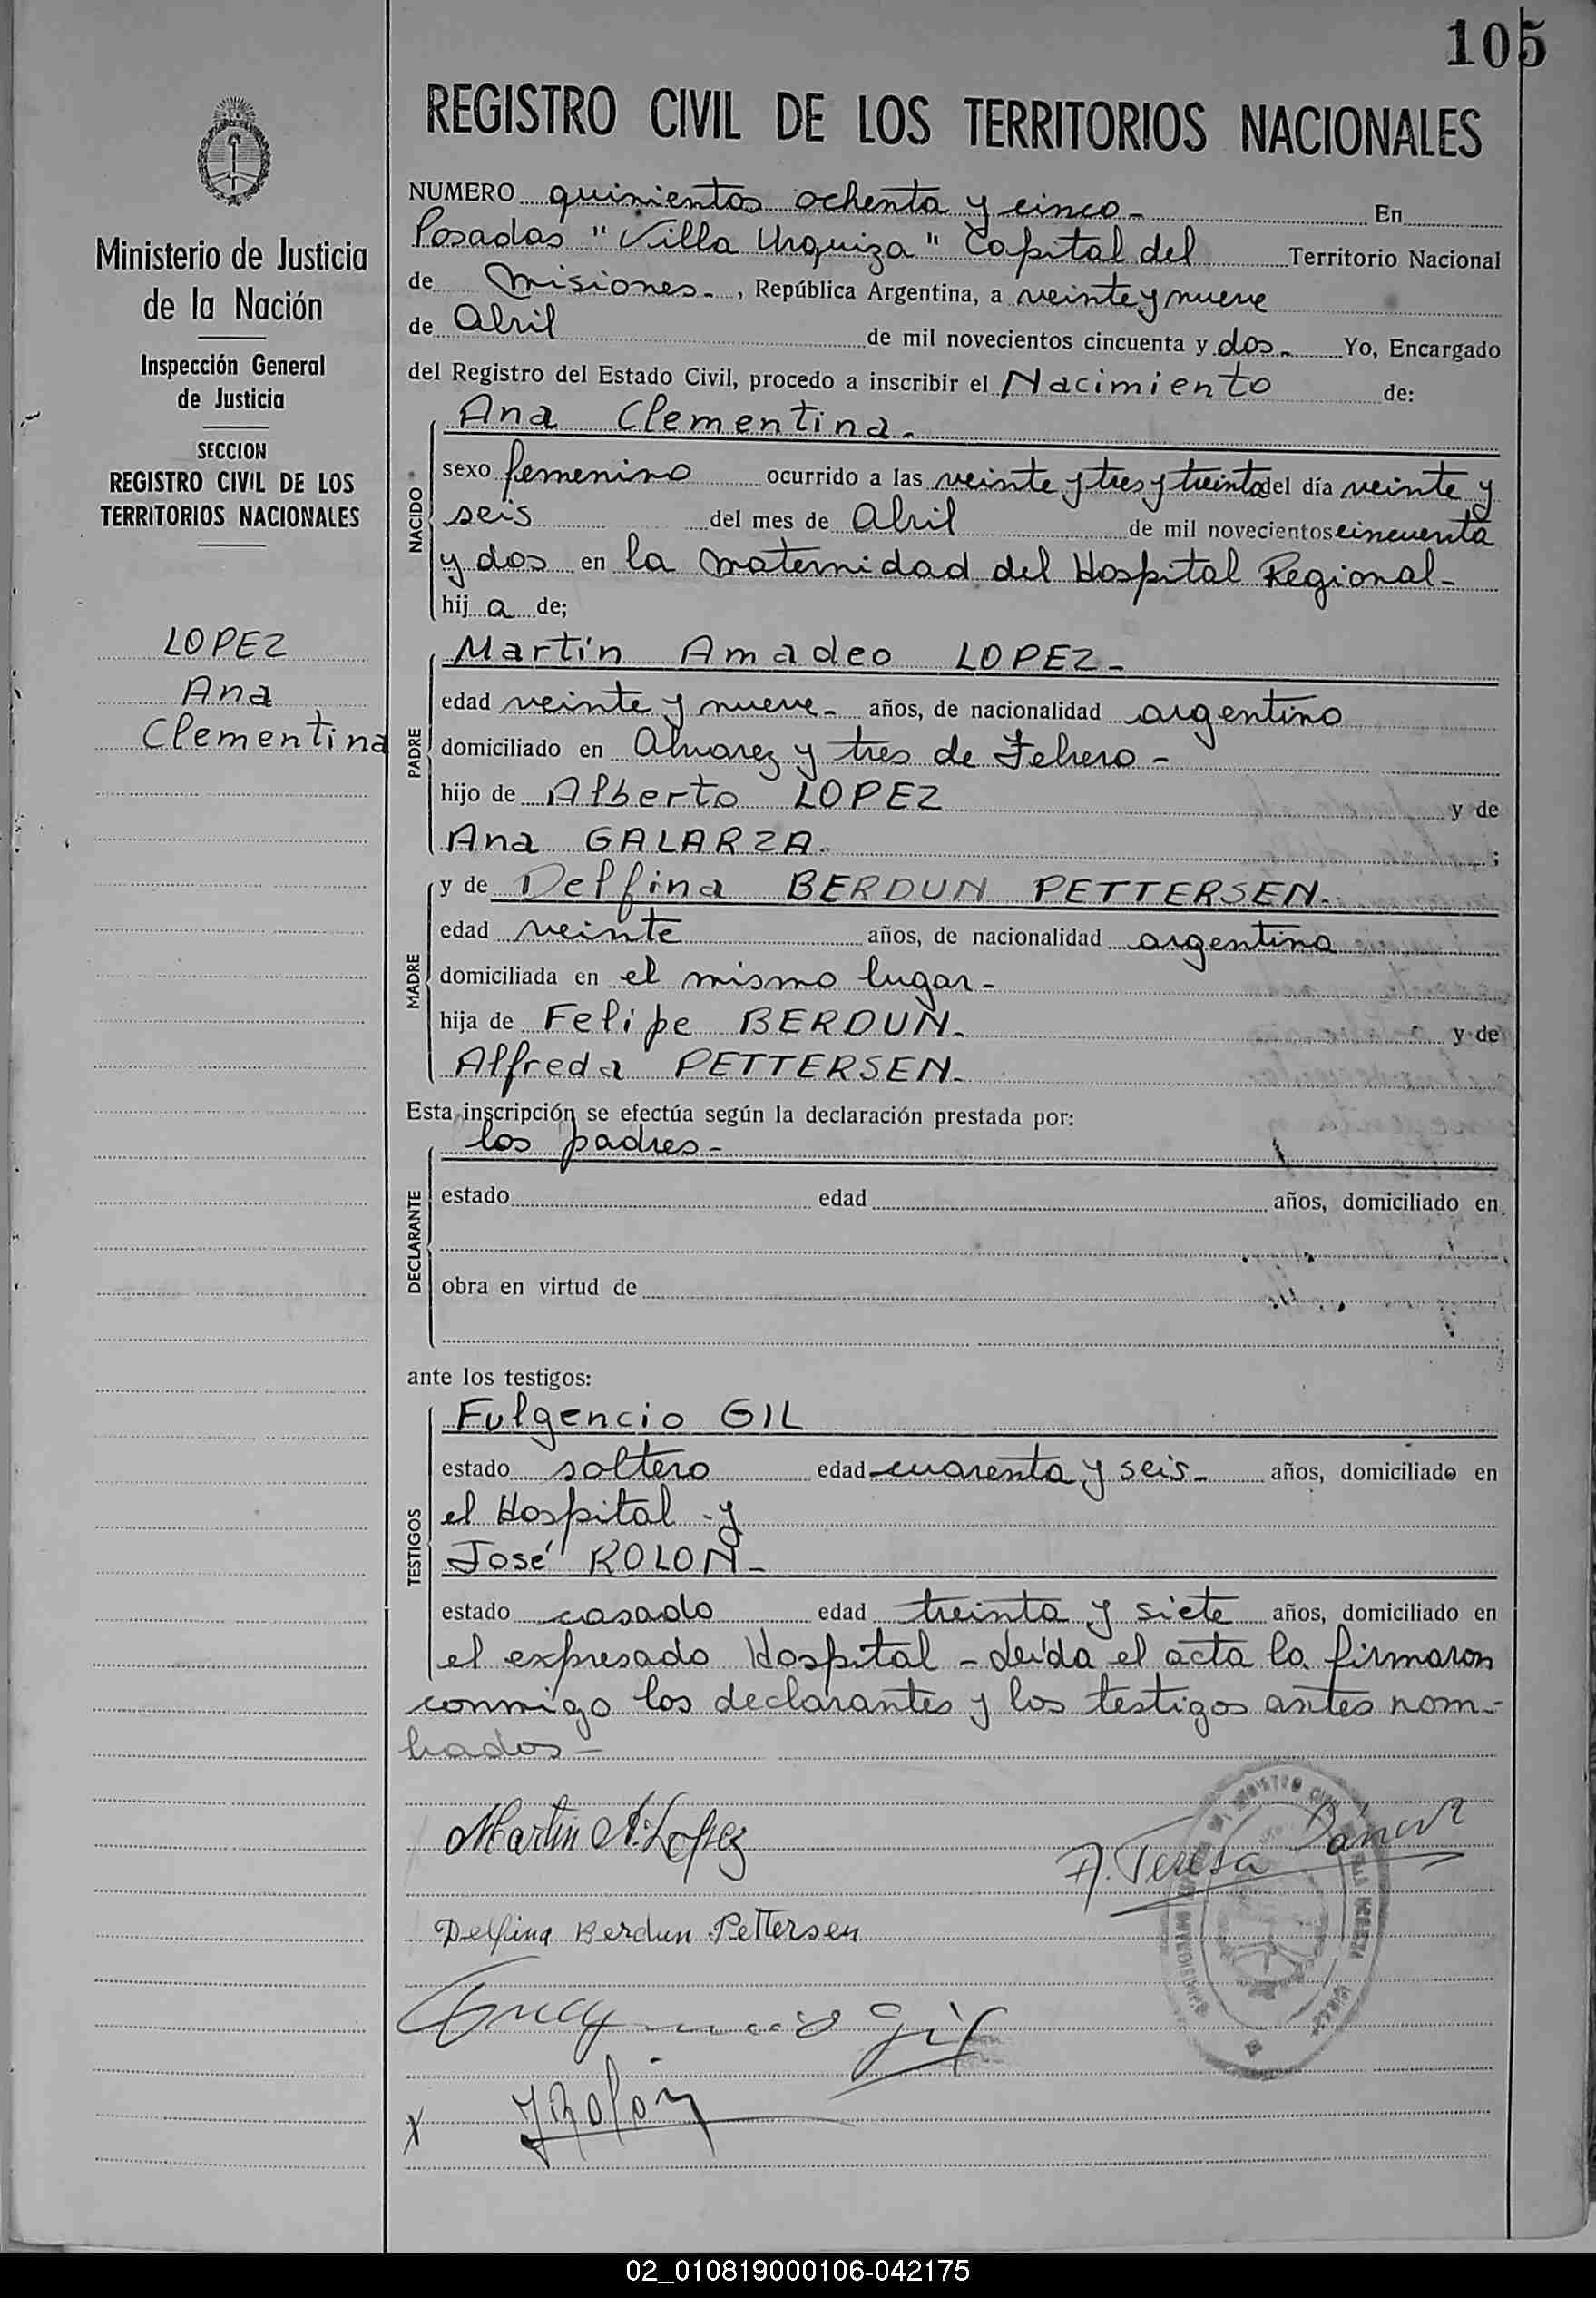 105
REGISTRO CIVIL DE LOS TERRITORIOS NACIONALES
Ministerio de Justicia
de la Nación
Inspección General
de Justicia
SECCION
REGISTRO CIVIL DE LOS
TERRITORIOS NACIONALES
LOPEZ
Ana
Clementina
NUMERO quinientos ochenta y cinco - En
Posadas "Villa Urquiza" Capital del Territorio Nacional
de Misiones -, República Argentina, a veinte y nueve
de Abril de mil novecientos cincuenta y dos - Yo, Encargado
del Registro del Estado Civil, procedo a inscribir el Nacimiento de:
NACIDO
Ana Clementina -
sexo femenino ocurrido a las veinte y tres y treinta del día veinte y
seis del mes de Abril de mil novecientos cincuenta
y dos en la Maternidad del Hospital Regional -
hij a de;
PADRE
Martín Amadeo LOPEZ -
edad veinte y nueve - años, de nacionalidad argentino
domiciliado en Alvarez y tres de Febrero -
hijo de Alberto LOPEZ y de
Ana GALARZA - ;
MADRE
y de Delfina BERDUN PETTERSEN -
edad veinte años, de nacionalidad argentina
domiciliada en el mismo lugar -
hija de Felipe BERDUN - y de
Alfreda PETTERSEN -
Esta inscripción se efectúa según la declaración prestada por:
DECLARANTE
los padres -
estado edad años, domiciliado en
obra en virtud de
ante los testigos:
TESTIGOS
Fulgencio GIL
estado soltero edad cuarenta y seis - años, domiciliado en
el Hospital - y
José ROLON -
estado casado edad treinta y siete años, domiciliado en
el expresado Hospital - Leída el acta la firmaron
conmigo los declarantes y los testigos antes nom-
brados -
Martin A. Lopez
A. Teresa
Delfina Berdun Pettersen
Gil
J Rolón
X
02_010819000106-042175